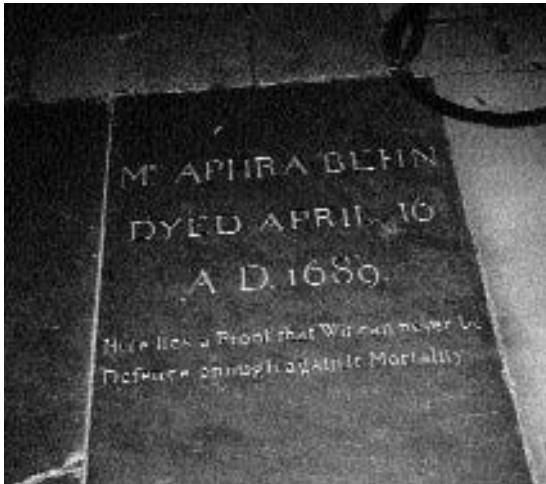 Mrs APHRA BEHN
DYED APRIL 16
A.D. 1689.
Here lies a Proof that Wit can never be
Defence enough against Mortality